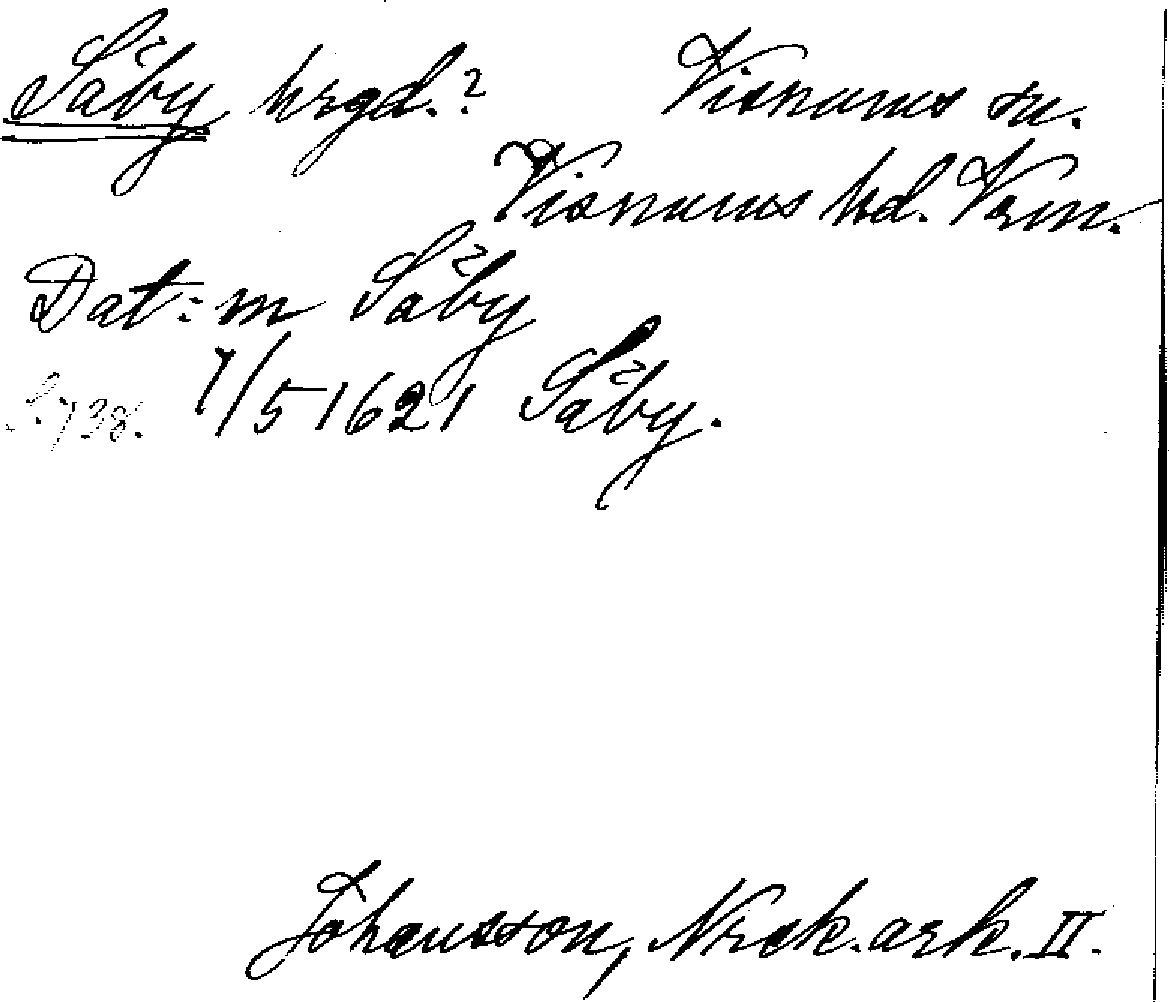 Såby hrgd.? Visnums sn.
Visnums hd. Vrm.
Dat: m Såby
S. 738. 7/5 1621 Såby.
Johansson, Nrck. ark. II.